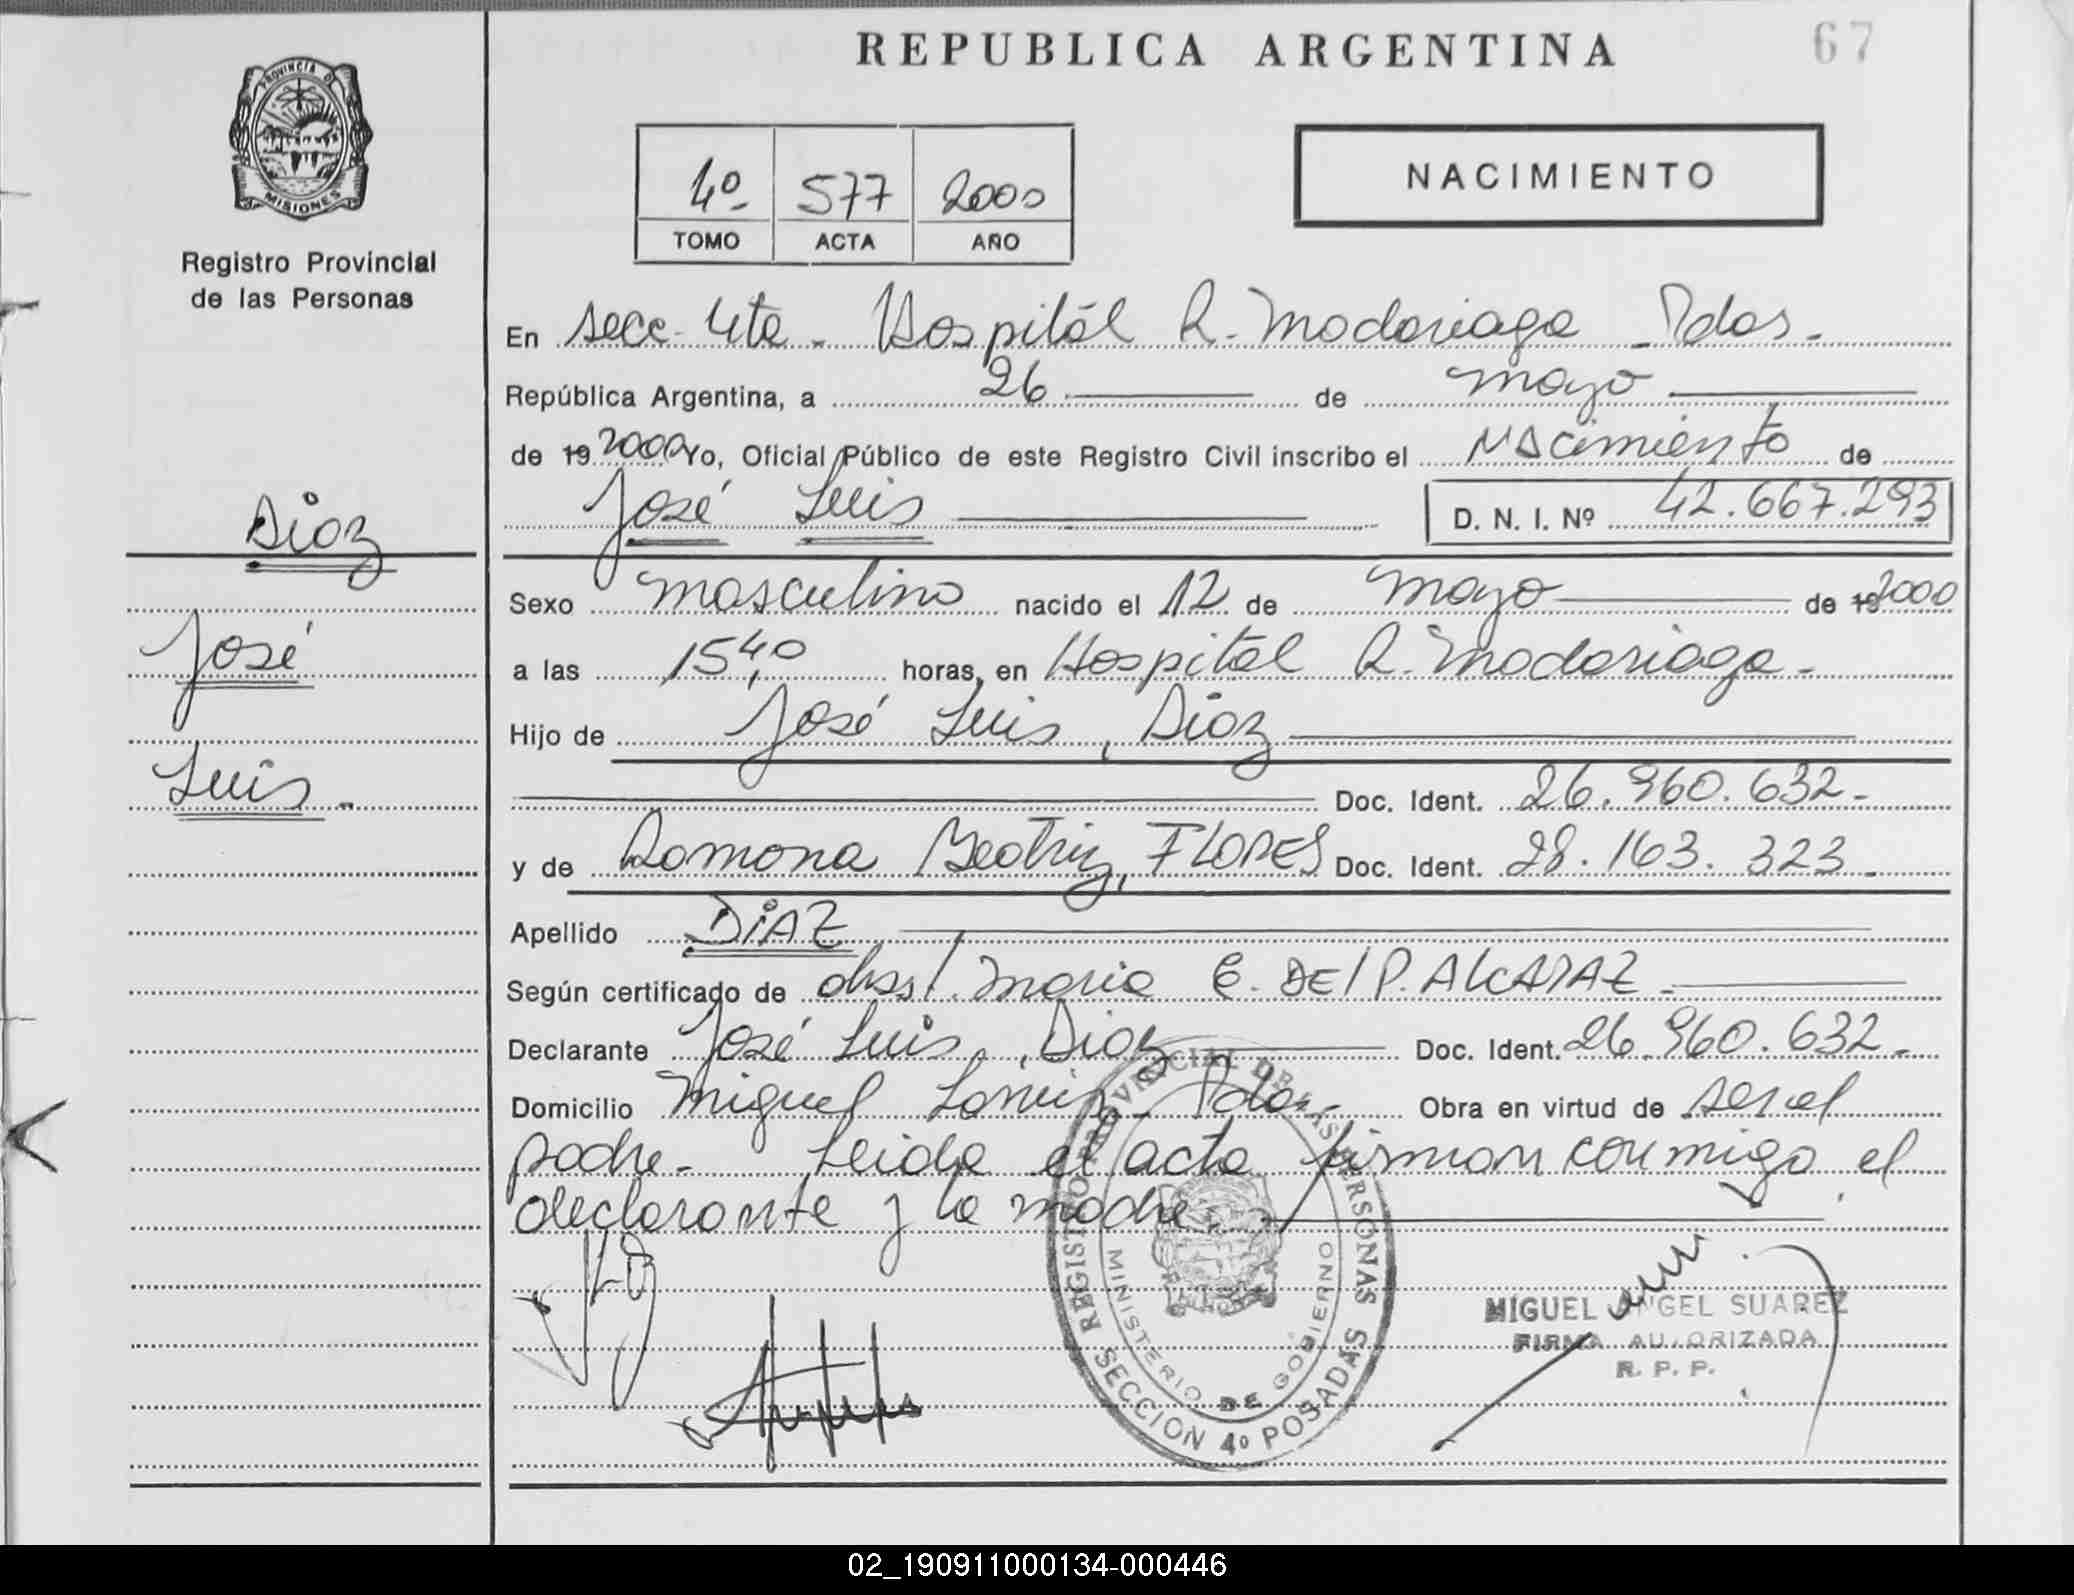 REPUBLICA ARGENTINA
67
PROVINCIA DE
MISIONES
Registro Provincial
de las Personas
4º 577 2000
TOMO ACTA AÑO
NACIMIENTO
En secc. 4ta. Hospital R. Madariaga - Pdas.
República Argentina, a 26 de mayo
de 19 2000 Yo, Oficial Público de este Registro Civil inscribo el Nacimiento de
José Luis D. N. I. Nº 42.667.293
Diaz
José
Luis.
Sexo masculino nacido el 12 de mayo de 19 2000
a las 15,40 horas, en Hospital R. Madariaga.
Hijo de José Luis, Diaz
Doc. Ident. 26.960.632.
y de Ramona Beatriz, FLORES Doc. Ident. 28.163.323.
Apellido DiAZ
Según certificado de obst. Maria E. DEl P. AlCARAZ.
Declarante José Luis, Diaz Doc. Ident. 26.960.632.
Domicilio Miguel Pdas. Obra en virtud de ser el
padre. Leida el acta firman conmigo el
declarante y la madre.
REGISTRO PROVINCIAL DE LAS PERSONAS
MINISTERIO DE GOBIERNO
SECCION 4º POSADAS
MIGUEL ANGEL SUAREZ
FIRMA AUTORIZADA
R. P. P.
02_190911000134-000446